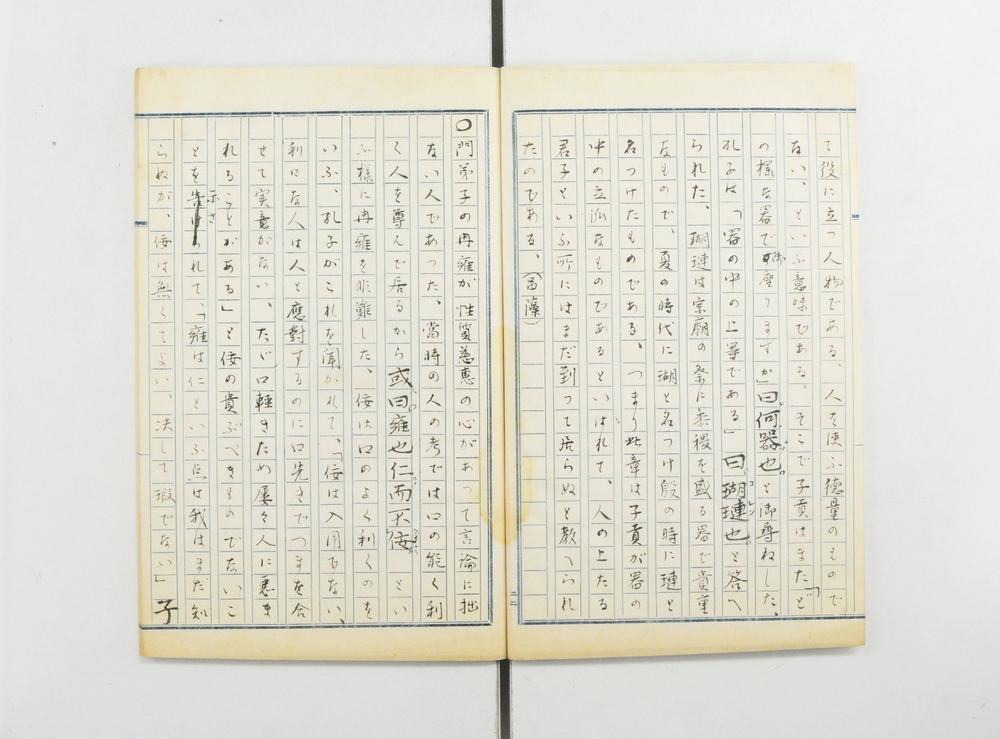 て役に立つ人物である、人を使ふ徳量のもので
ない、といふ意味である、そこで子貢はまた「ど
の様な器で御座りますか」曰何器也と御尋ねした、
孔子は「器の中の上等である」曰瑚璉也と答へ
られた、瑚璉は宗廟の祭に黍稷を盛る器で貴重
なもので、夏の時代に瑚と名つけ殷の時に璉と
名つけたものである、つまり此章は子貢が器の
中の立派なものであるといはれて、人の上たる
君子といふ所にはまだ到って居らぬと教へられ
たのである、
二二
〇門弟子の冉雍が性質慈恵の心があって言論に拙
ない人であった、當時の人の考では口の能く利
く人を尊んで居るから或曰雍也仁而不佞とい
ふ様に冉雍を非難した、佞は口のよく利くのを
いふ、孔子がこれを聞かれて、「佞は入用でない、
利口な人は人と應對するのに口先きでつまを合
せて実意がない、たゞ口軽きため屡々人に悪ま
れることがある」と佞の貴ぶべきものでないこ
とを示されて、「雍は仁といふ点は我はまだ知
らぬが、佞は無くてよい、决して瑕でない」子